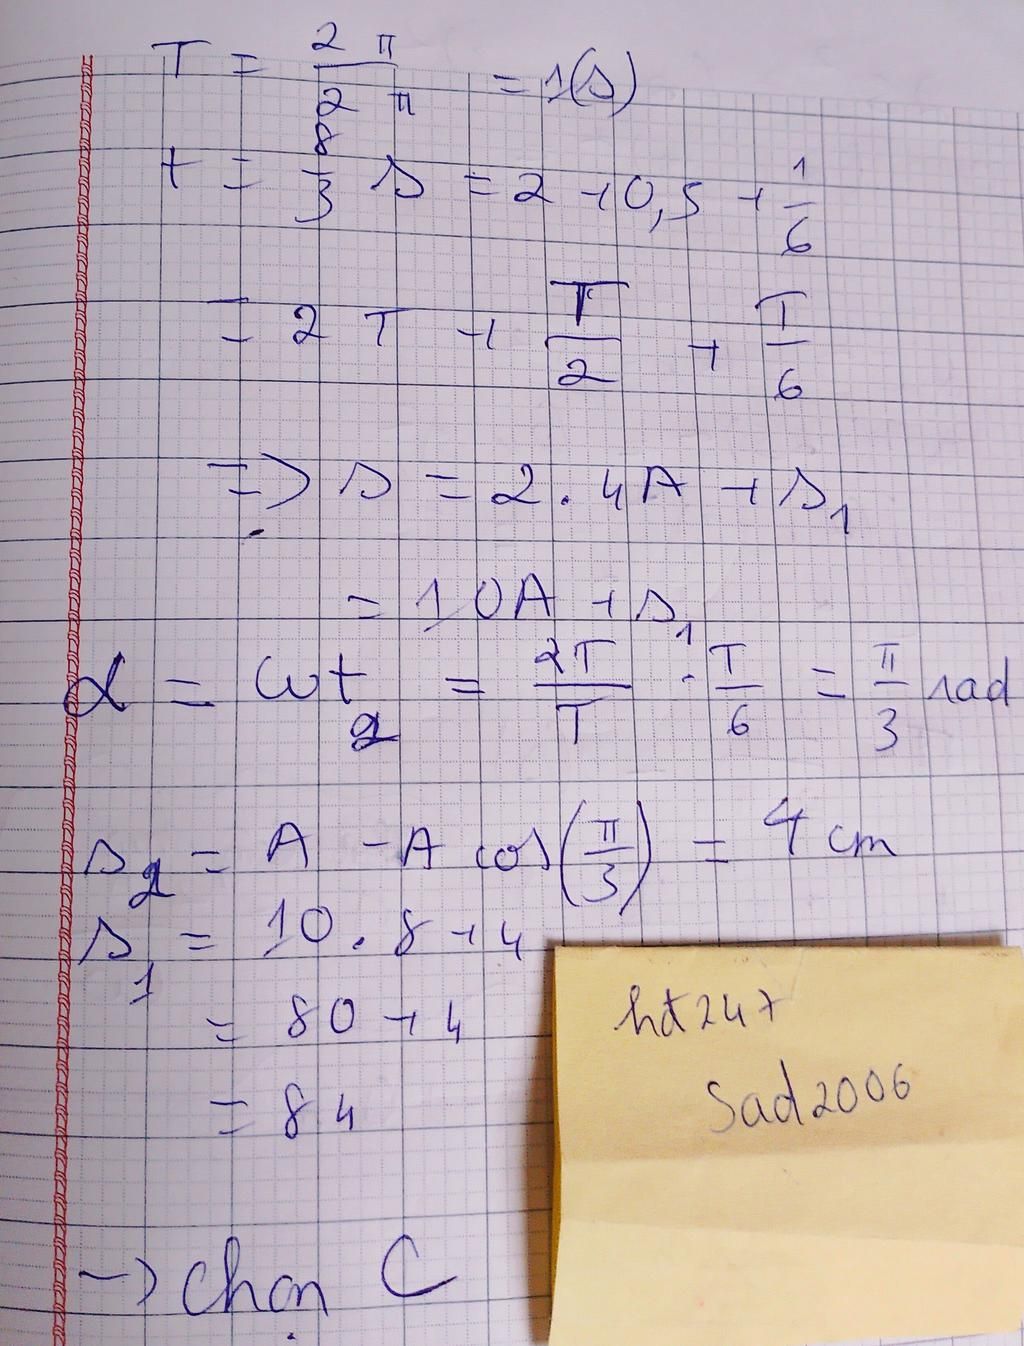 T = 2π / 2π = 1(s)
t = 8/3 s = 2 + 0,5 + 1/6
= 2T + T/2 + T/6
=> s = 2.4A + s₁
= 10A + s₁
α = ωt₂ = 2T/T . T/6 = π/3 rad
s₂ = A - A cos(π/3) = 4 cm
s₁ = 10.8 + 4
= 80 + 4
= 84
-> chọn C
hdt247
Sad2006